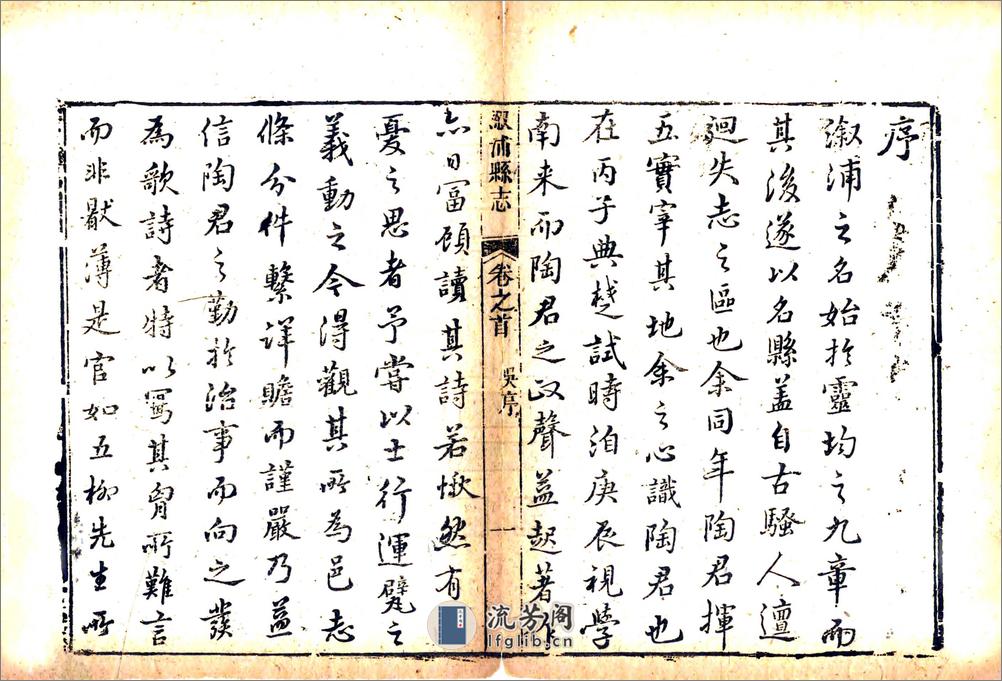 序
溆浦之名始扵靈均之九章而
其後遂以名縣盖自古騷人邅
廻失志之區也余同年陶君揮
五實宰其地余之心識陶君也
在丙子典楚試時洎庚辰視學
南来而陶君之政聲益起著作
溆浦縣志 卷之首 吳序 一
亦日富顧讀其詩若愀然有
憂之思者予嘗以士行運甓之
義動之今得觀其所為邑志
條分件繫詳贍而謹嚴乃益
信陶君之勤扵治事而向之發
為歌詩者特以寫其胷所難言
而非厭薄是官如五柳先生所
流芳阁
lfglib.cn